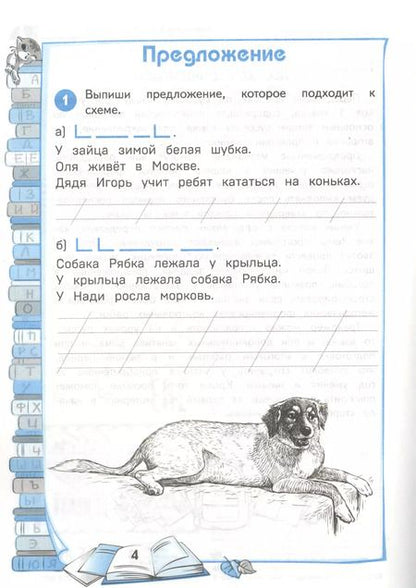 Предложение
1 Выпиши предложение, которое подходит к
схеме.
а)
У зайца зимой белая шубка.
Оля живёт в Москве.
Дядя Игорь учит ребят кататься на коньках.
б)
Собака Рябка лежала у крыльца.
У крыльца лежала собака Рябка.
У Нади росла морковь.
4
А
Б
В
Г
Д
Е Ё
Ж
З
И Й
К
Л
М
Н
О
П
Р С
Т
У
Ф Х
Ц
Ч
Ш
Щ
Ъ
Ы
Ь
Э
Ю Я